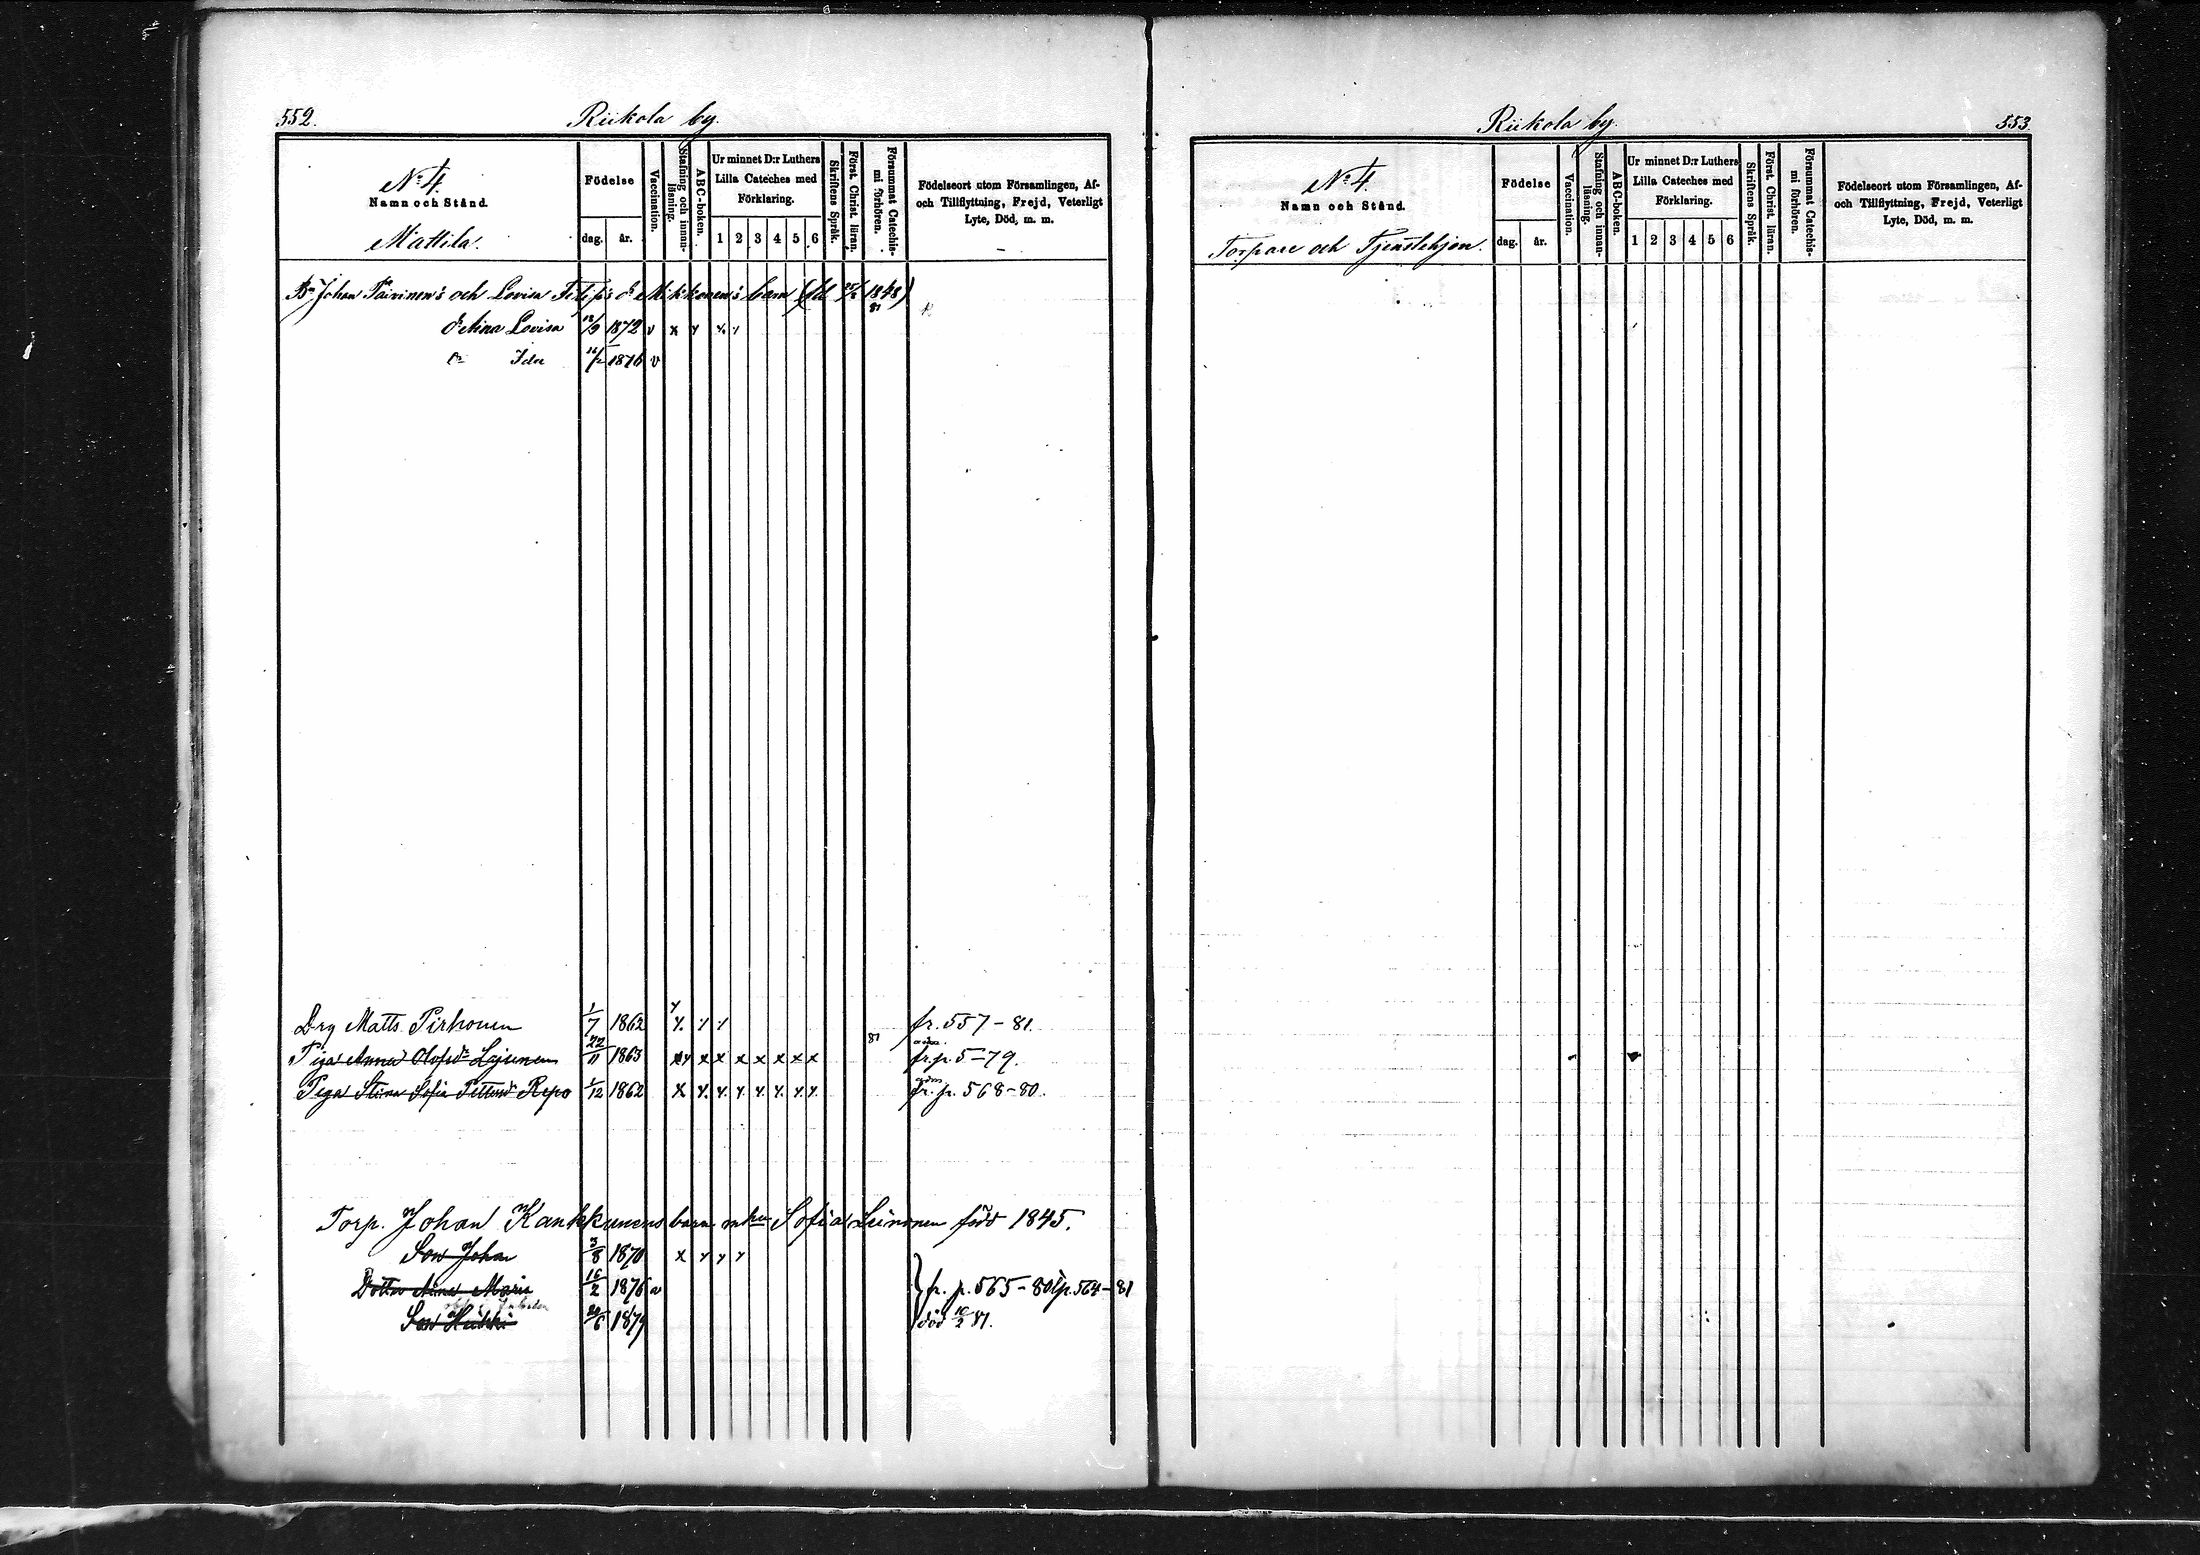 552. Riikola by.
No 4.
Namn och Stånd.
Mattila.
Födelse
dag. år.
Vaccination.
Stafning och innanläsning.
ABC-boken.
Ur minnet D:r Luthers
Lilla Cateches med
Förklaring.
1 2 3 4 5 6
Skriftens Språk.
Först. Christ. läran.
Försummat Catechis-
mi förhören.
Födelseort utom Församlingen, Af-
och Tillflyttning, Frejd, Veterligt
Lyte, Död, m. m.
Johan Päivinen's och Lovisa Filip's dr Mikkonen's barn 1848)
81
dr Mina Lovisa 12/9 1872 v x y x y
dr Ida 1876 v
Drg Matts Pirhonen 1/7 1862 y y. y y fr. 557-81.
Piga Anna Olofsdr Lajunen 22/11 1863 xy x x x x x x x 81 fr. p. 5-79.
Piga Stina Sofia Pettersdr Repo 1/12 1862 x y. y. y. y. y. y. y. fr. p. 568-80.
Torp. Johan Kankkunens barn Sofia född 1845.
Son Johan 3/8 1870 x y y y
Dotter Maria 16/2 1876 v fr. p. 565-80 p. 564-81
Son Heikki 24/6 1879 död 10/2 81.
Riikola by. 553.
No 4.
Namn och Stånd.
Torpare och Tjenstehjon.
Födelse
dag. år.
Vaccination.
Stafning och innanläsning.
ABC-boken.
Ur minnet D:r Luthers
Lilla Cateches med
Förklaring.
1 2 3 4 5 6
Skriftens Språk.
Först. Christ. läran.
Försummat Catechis-
mi förhören.
Födelseort utom Församlingen, Af-
och Tillflyttning, Frejd, Veterligt
Lyte, Död, m. m.